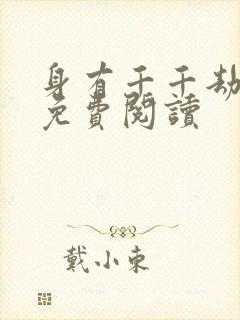 身有千千劫
免費閱讀
戴小東